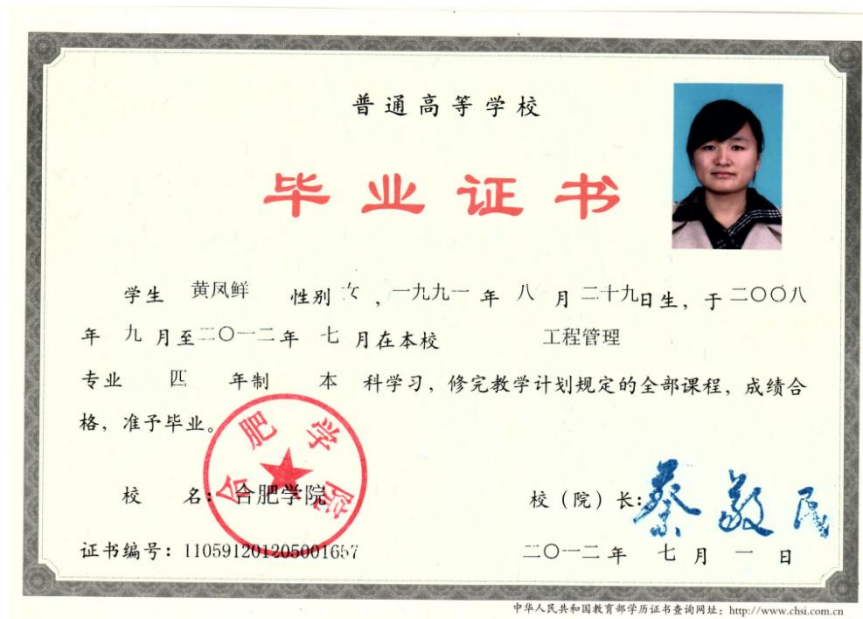 普通高等学校
毕业证书
学生 黄凤鲜 性别 女 ，一九九一 年 八 月 二十九日生，于 二〇〇八
年 九 月至二〇一二年 七 月在本校 工程管理
专业 四 年制 本 科学习，修完教学计划规定的全部课程，成绩合
格，准予毕业。
合肥学院
校 名：合肥学院 校（院）长：蔡敬民
证书编号：110591201205001657 二〇一二年 七 月 一 日
中华人民共和国教育部学历证书查询网址：http://www.chsi.com.cn